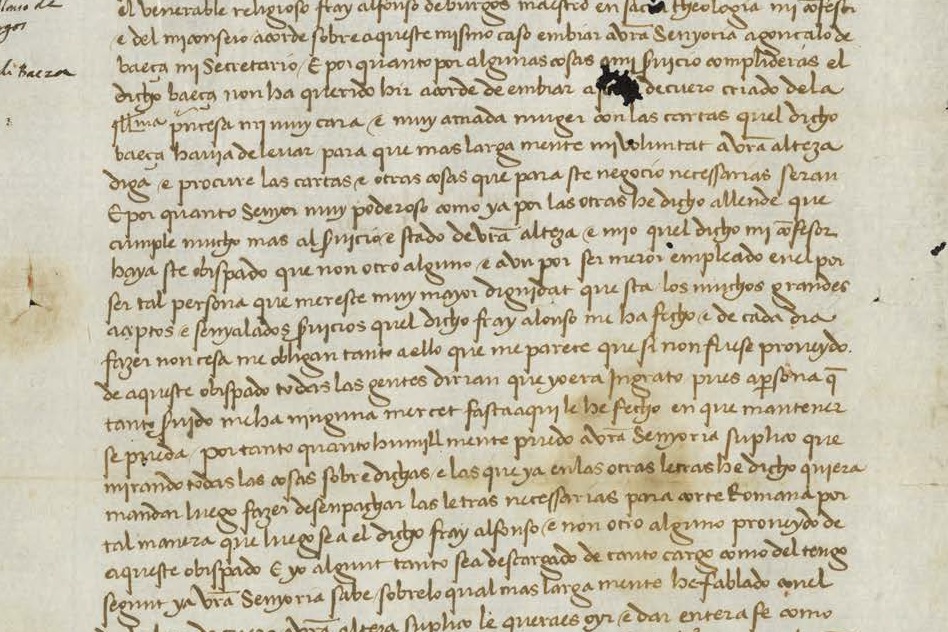 el venerable religioso fray alfonso de burgos maestro en sacra theologia mi cõfessor
e del mi conseio acorde sobre aqueste mismo caso embiar a vrã Senyoria a gonçalo de
baeça mi Secretario / E por quanto por algunas cosas a mi s̃uicio complideras el
dicho baeça non ha querido hir acorde de embiar a de cuero criado de la
Illma prĩcesa mi muy cara e muy amada muger con las cartas quel dicho
baeça havia de levar para que mas larga mente mi voluntat a vrã alteza
diga e procure las cartas e otras cosas que para ste negocio necessarias seran
E por quanto Senyor muy poderoso como ya por las otras he dicho allende que
cumple mucho mas al s̃uicio e stado de vrã alteza e mio quel dicho mi cõfessor
haya ste obispado que non otro alguno e avn por ser meior empleado en el por
ser tal persona que meresce muy mayor dignidat que sta los muchos grandes
aceptos e senyalados s̃uicios quel dicho fray alonso me ha fecho e de cada dia
fazer non cesa me obligan tanto a ello que me parece que si non fuese proveydo.
de aqueste obispado todas las gentes dirian que yo era Ingrato pues a p̱sona q̃
tanto s̃uido me ha ninguna mercet fasta aqui le he fecho en que mantener
se pueda / por tanto quanto humill mente puedo a vrã Senyoria suplico que
mirando todas las cosas sobredichas e las que ya en las otras letras he dicho quiera
mandar luego fazer desenpachar las letras necessarias para corte Romana por
tal manera que luego sea el dicho fray alfonso e non otro alguno proveydo de
aqueste obispado E yo algunt tanto sea descargado de tanto cargo como del tengo
segunt ya vrã Senyoria sabe sobre lo qual mas larga mente he fablado con el
vrã alteza suplico le queraes oyr e dar entera fe como